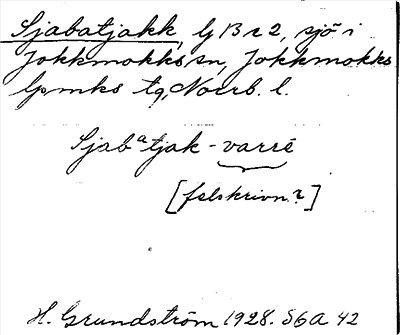 Sjabatjakk, GB r 2, sjö i
Jokkmokks sn, Jokkmokks
lpmks tg, Norrb. l.
Sjabᵃtjak-varrē
[felskrivn.?]
H. Grundström 1928. S6A 42